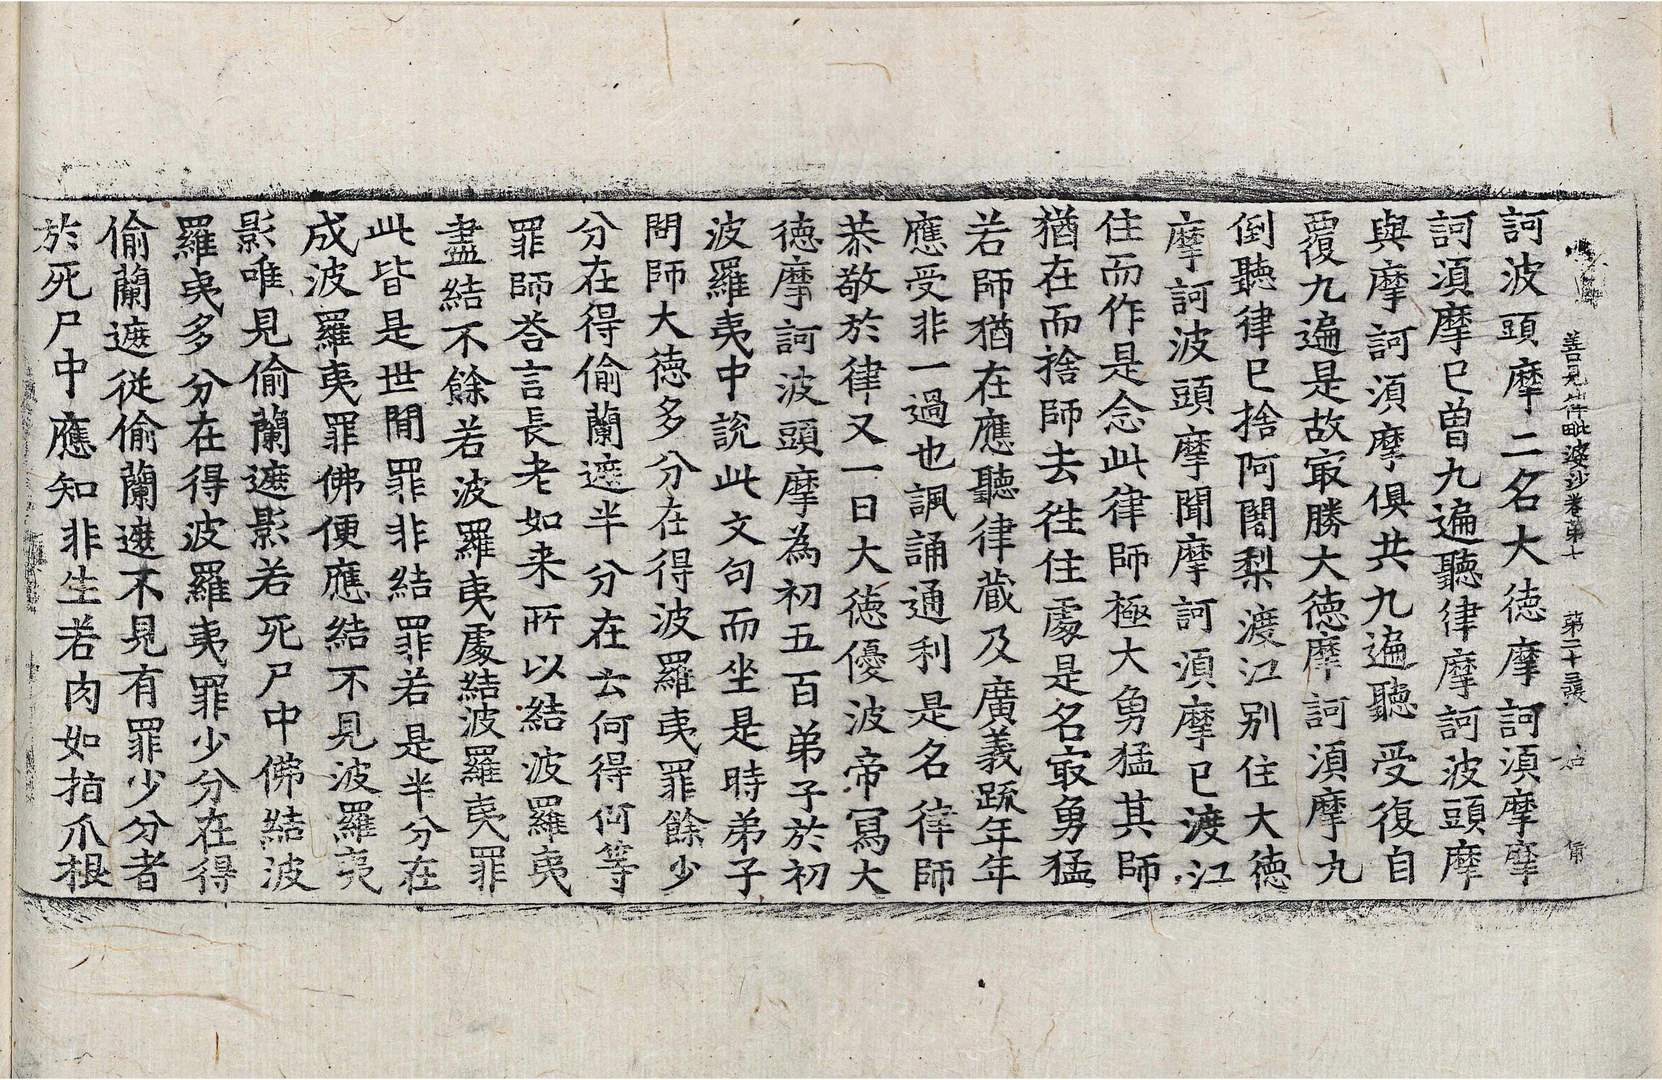 善見律毗婆沙卷第十 第二十三張 右
訶波頭摩二名大徳摩訶湏摩摩
訶湏摩已曽九遍聽律摩訶波頭摩
與摩訶湏摩俱共九遍聽受復自
覆九遍是故㝡勝大徳摩訶湏摩九
倒聽律已捨阿闍梨渡江别住大徳
摩訶波頭摩聞摩訶湏摩已渡江
住而作是念此律師極大勇猛其師
猶在而捨師去徃住處是名㝡勇猛
若師猶在應聽律藏及廣義䟽年年
應受非一過也諷誦通利是名律師
恭敬於律又一日大徳優波帝寫大
徳摩訶波頭摩為初五百弟子於初
波羅夷中說此文句而坐是時弟子
問師大徳多分在得波羅夷罪餘少
分在得偷蘭遮半分在云何得何等
罪師荅言長老如来所以結波羅夷
盡結不餘若波羅夷處結波羅夷罪
此皆是世閒罪非結罪若是半分在
成波羅夷罪佛便應結不見波羅夷
影唯見偷蘭遮影若死尸中佛結波
羅夷多分在得波羅夷罪少分在得
偷蘭遮從偷蘭遮不見有罪少分者
於死尸中應知非生若肉如指爪根